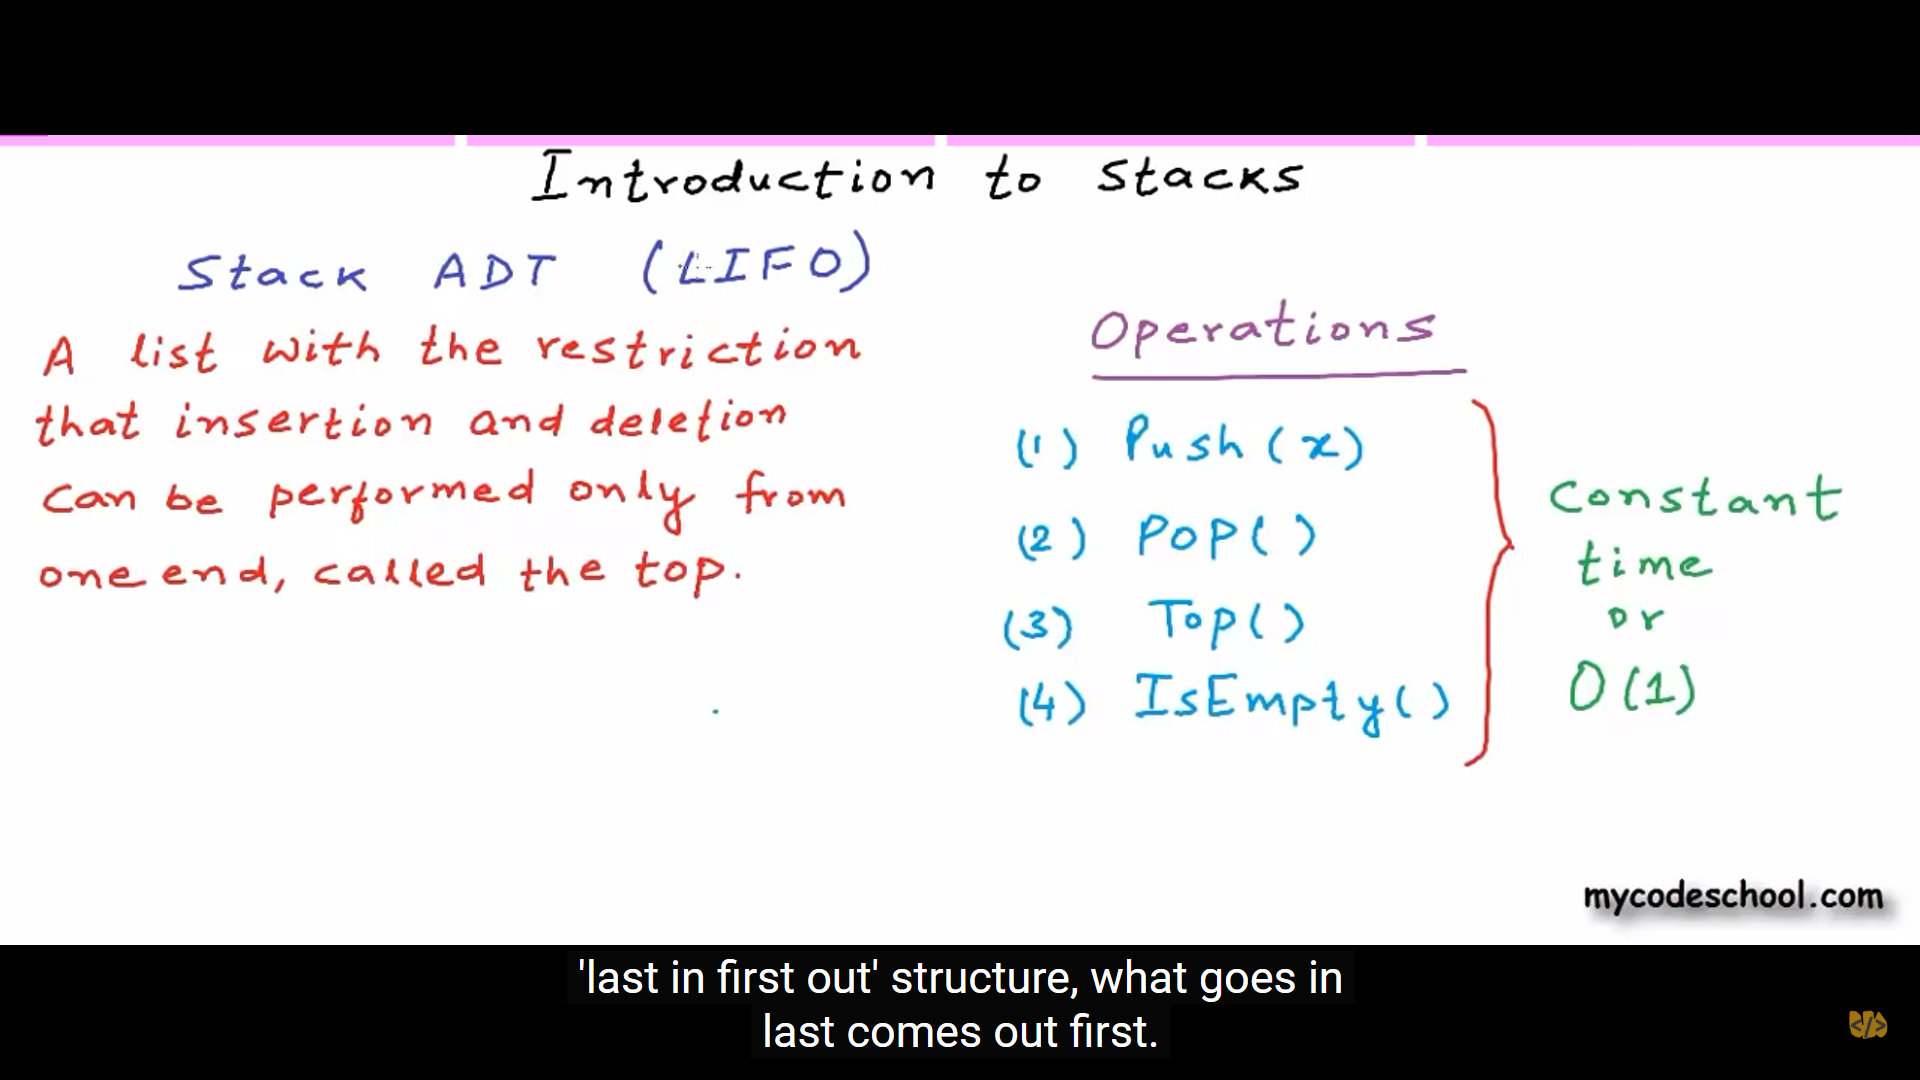 Introduction to Stacks
Stack ADT (LIFO)
A list with the restriction
that insertion and deletion
can be performed only from
one end, called the top.
Operations
(1) Push(x)
(2) Pop()
(3) Top()
(4) IsEmpty()
Constant
time
or
O(1)
mycodeschool.com
'last in first out' structure, what goes in
last comes out first.